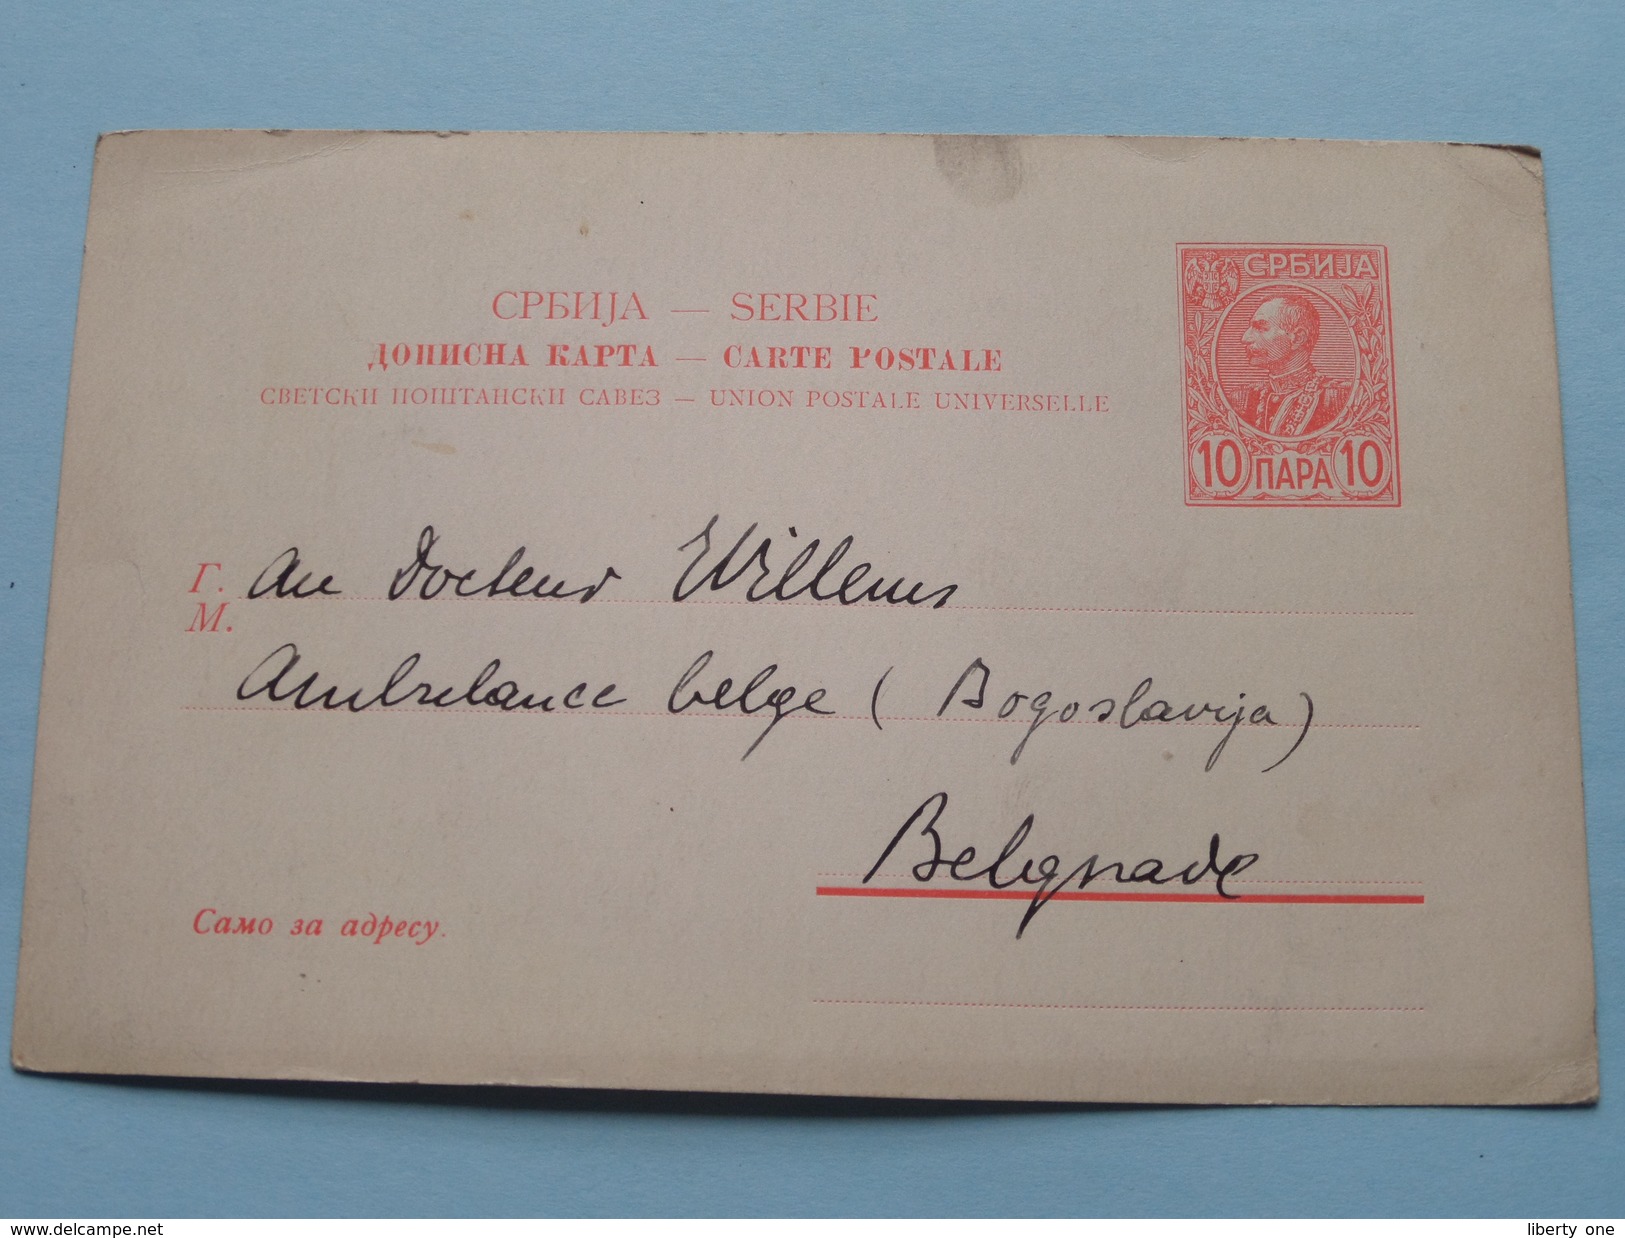 СРБИЈА
СРБИЈА — SERBIE
ДОПИСНА КАРТА — CARTE POSTALE
СВЕТСКИ ПОШТАНСКИ САВЕЗ — UNION POSTALE UNIVERSELLE
10 ПАРА 10
Г. Au Docteur Willems
М.
Ambulance belge (Bogoslavija)
Belgrade
Само за адресу.
www.delcampe.net
liberty one